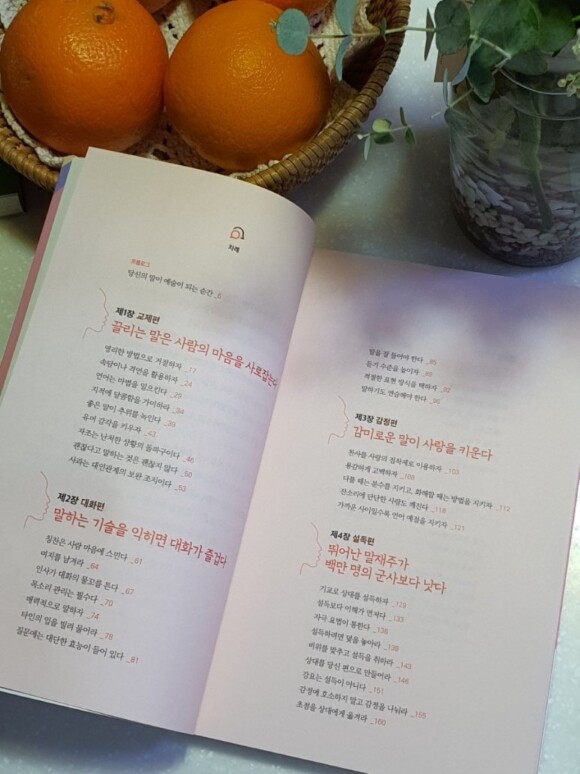 차례
프롤로그
당신의 말이 예술이 되는 순간 _5
제1장 교제편
끌리는 말은 사람의 마음을 사로잡는다
영리한 방법으로 거절하자 _17
속담이나 격언을 활용하자 _24
언어는 마법을 일으킨다 _29
지적에 달콤함을 가미하라 _34
좋은 말이 추위를 녹인다 _39
유머 감각을 키우자 _43
자조는 난처한 상황의 돌파구이다 _46
괜찮다고 말하는 것은 괜찮지 않다 _50
사과는 대인관계의 보완 조치이다 _53
제2장 대화편
말하는 기술을 익히면 대화가 즐겁다
칭찬은 사람 마음에 스민다 _61
여지를 남겨라 _64
인사가 대화의 물꼬를 튼다 _67
목소리 관리는 필수다 _70
매력적으로 말하자 _74
타인의 입을 빌려 물어라 _78
질문에는 대단한 효능이 들어 있다 _81
말을 잘 들어야 한다 _85
듣기 수준을 높이자 _88
적절한 표현 방식을 택하자 _92
말하기도 연습해야 한다 _96
제3장 감정편
감미로운 말이 사랑을 키운다
찬사를 사랑의 접착제로 이용하자 _103
용감하게 고백하자 _108
다툴 때는 분수를 지키고, 화해할 때는 방법을 지키자 _112
잔소리에 단단한 사랑도 깨진다 _118
가까운 사이일수록 언어 예절을 지키자 _121
제4장 설득편
뛰어난 말재주가
백만 명의 군사보다 낫다
기교로 상대를 설득하자 _129
설득보다 이해가 먼저다 _133
자극 요법이 통한다 _136
설득하려면 덫을 놓아라 _138
비위를 맞추고 설득을 취하라 _143
상대를 당신 편으로 만들어라 _146
강요는 설득이 아니다 _151
감정에 호소하지 말고 감정을 나눠라 _155
초점을 상대에게 옮겨라 _160